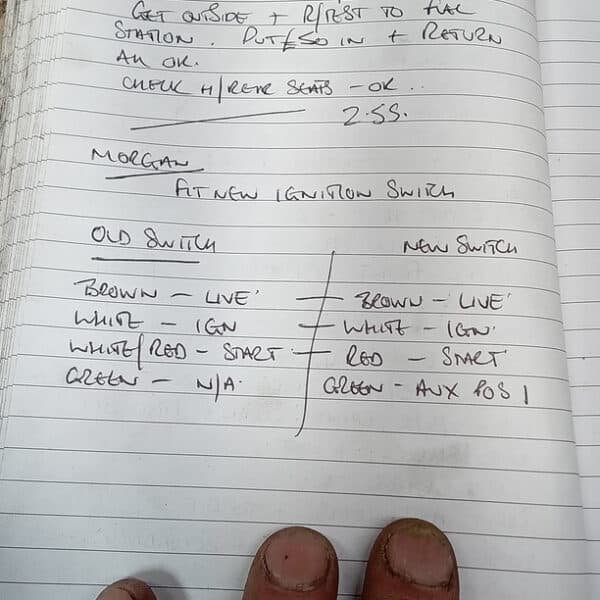 GET OUTSIDE + R/TEST TO FUAL
STATION. PUT £50 IN + RETURN
ALL OK.
CHECK H/REAR SEATS - OK ..
2.55.
MORGAN
FIT NEW IGNITION SWITCH
OLD SWITCH NEW SWITCH
BROWN - LIVE' BROWN - 'LIVE'
WHITE - IGN WHITE - IGN'
WHITE/RED - START RED - START
GREEN - N/A. GREEN - AUX POS 1